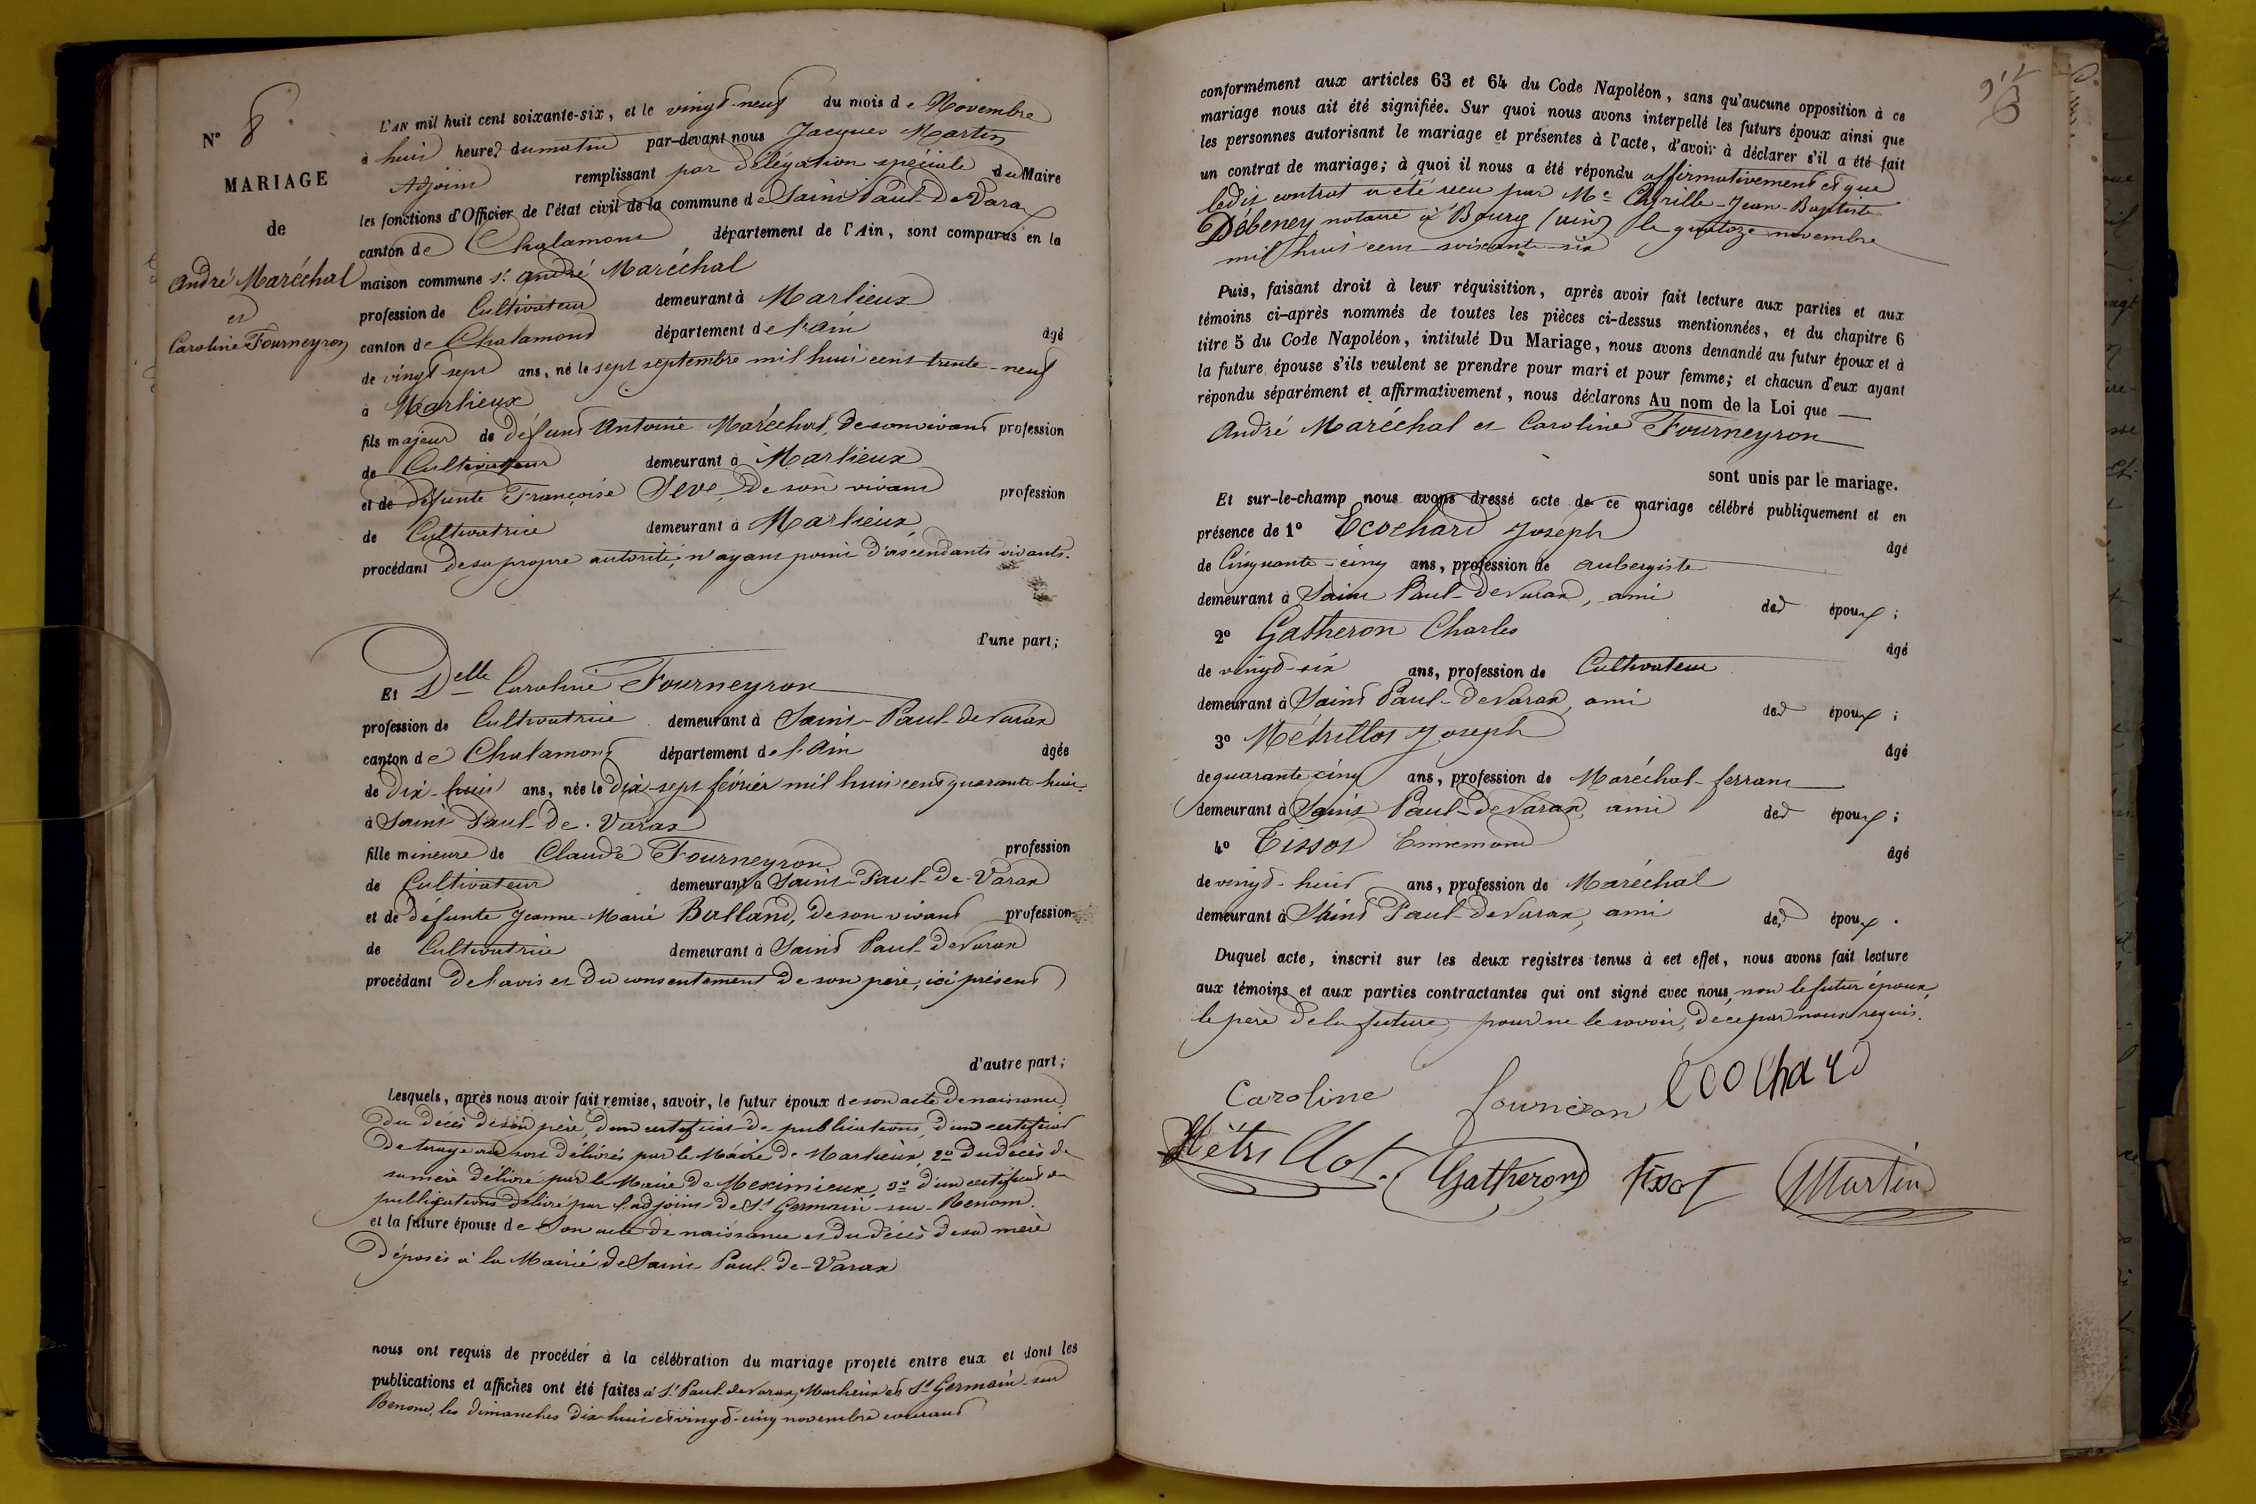 N° 8
MARIAGE
de
André Maréchal
et
Caroline Fourneyron
L'AN mil huit cent soixante-six, et le vingt-neuf du mois de Novembre
à huit heures du matin par-devant nous Jacques Martin
Adjoint remplissant par délégation spéciale du Maire
les fonctions d'Officier de l'état civil de la commune de Saint Paul-de Varax
canton de Chalamont département de l'Ain, sont comparus en la
maison commune Sr. André Maréchal
profession de Cultivateur demeurant à Marlieux
canton de Chalamont département de l'Ain âgé
de vingt-sept ans, né le sept septembre mil huit cent trente-neuf
à Marlieux
fils majeur de défunt Antoine Maréchal, de son vivant profession
de Cultivateur demeurant à Marlieux
et de défunte Françoise Seve, de son vivant profession
de Cultivatrice demeurant à Marlieux
procédant de sa propre autorité, n'ayant point d'ascendants vivants.
d'une part;
Et Delle Caroline Fourneyron
profession de Cultivatrice demeurant à Saint-Paul-de Varax
canton de Chalamont département de l'Ain âgée
de dix-huit ans, née le dix-sept février mil huit cent quarante-huit
à Saint Paul-de-Varax
fille mineure de Claude Fourneyron profession
de Cultivateur demeurant à Saint-Paul-de-Varax
et de défunte Jeanne-Marie Balland, de son vivant profession
de Cultivatrice demeurant à Saint Paul-de Varax
procédant de l'avis et du consentement de son père, ici présent
d'autre part;
Lesquels, après nous avoir fait remise, savoir, le futur époux de son acte de naissance
du décès de son père, d'un certificat de publications, d'un certificat
de tirage au sort délivrés par le Maire de Marlieux, 2° du décès de
sa mère délivré par le Maire de Meximieux, 3° d'un certificat de
publications délivré par l'adjoint de St Germain-sur-Renom.
et la future épouse de son acte de naissance et du décès de sa mère
déposés à la Mairie de Saint Paul-de-Varax
nous ont requis de procéder à la célébration du mariage projeté entre eux et dont les
publications et affiches ont été faites à St. Paul de Varax, Marlieux et St Germain-sur
Renom, les dimanches dix-huit et vingt-cinq novembre courant
conformément aux articles 63 et 64 du Code Napoléon, sans qu'aucune opposition à ce
mariage nous ait été signifiée. Sur quoi nous avons interpellé les futurs époux ainsi que
les personnes autorisant le mariage et présentes à l'acte, d'avoir à déclarer s'il a été fait
un contrat de mariage; à quoi il nous a été répondu affirmativement et que
ledit contrat a été reçu par Me Cyrille-Jean-Baptiste
Débeney notaire à Bourg (Ain) le quatorze novembre
mil huit cent soixante-six
Puis, faisant droit à leur réquisition, après avoir fait lecture aux parties et aux
témoins ci-après nommés de toutes les pièces ci-dessus mentionnées, et du chapitre 6
titre 5 du Code Napoléon, intitulé Du Mariage, nous avons demandé au futur époux et à
la future épouse s'ils veulent se prendre pour mari et pour femme; et chacun d'eux ayant
répondu séparément et affirmativement, nous déclarons Au nom de la Loi que
André Maréchal et Caroline Fourneyron
sont unis par le mariage.
Et sur-le-champ nous avons dressé acte de ce mariage célébré publiquement et en
présence de 1° Ecochard Joseph âgé
de Cinquante-cinq ans, profession de aubergiste
demeurant à Saint Paul-de Varax, ami des époux;
2° Gatheron Charles âgé
de vingt-six ans, profession de Cultivateur
demeurant à Saint Paul-de Varax, ami des époux;
3° Métrillot Joseph âgé
de quarante cinq ans, profession de Maréchal-ferrant
demeurant à Saint Paul-de Varax, ami des époux;
4° Tissot Ennemond âgé
de vingt-huit ans, profession de Maréchal
demeurant à Saint Paul-de Varax, ami des époux.
Duquel acte, inscrit sur les deux registres tenus à cet effet, nous avons fait lecture
aux témoins et aux parties contractantes qui ont signé avec nous, non le futur époux,
le père de la future, pour ne le savoir, de ce par nous requis.
Caroline fourneron Ecochard
Métrillot. Gatheron Tissot Martin